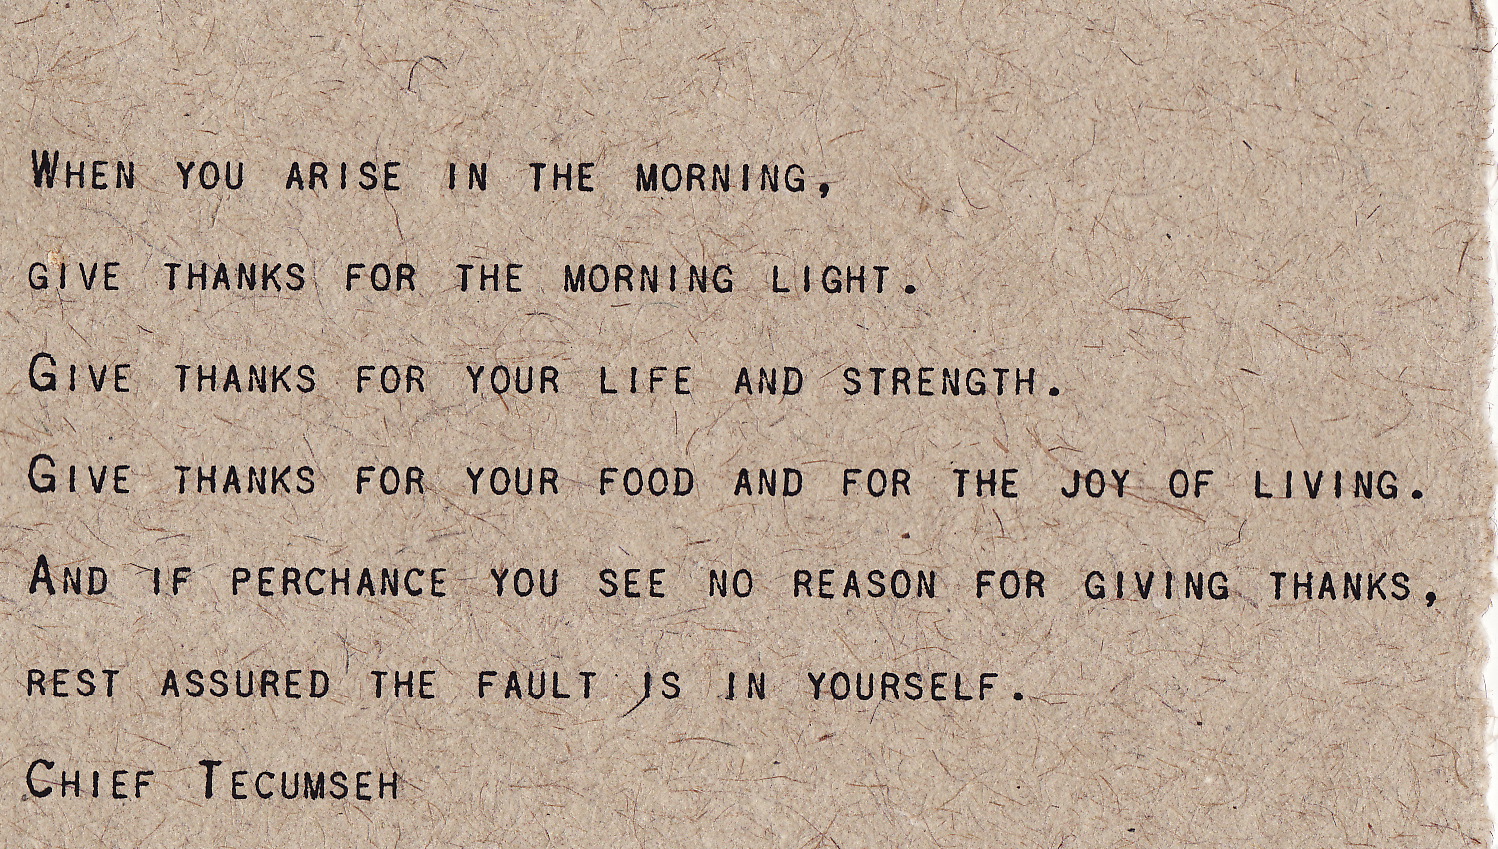 When you arise in the morning,
give thanks for the morning light.
Give thanks for your life and strength.
Give thanks for your food and for the joy of living.
And if perchance you see no reason for giving thanks,
rest assured the fault is in yourself.
Chief Tecumseh